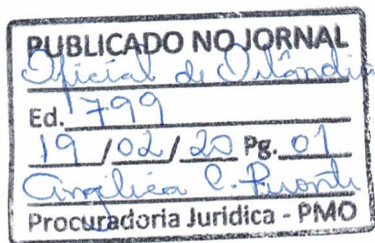 PUBLICADO NO JORNAL
Oficial de Orlândia
Ed. 799
19 / 02 / 20 Pg. 01
Angélica C.
Procuradoria Juridica - PMO